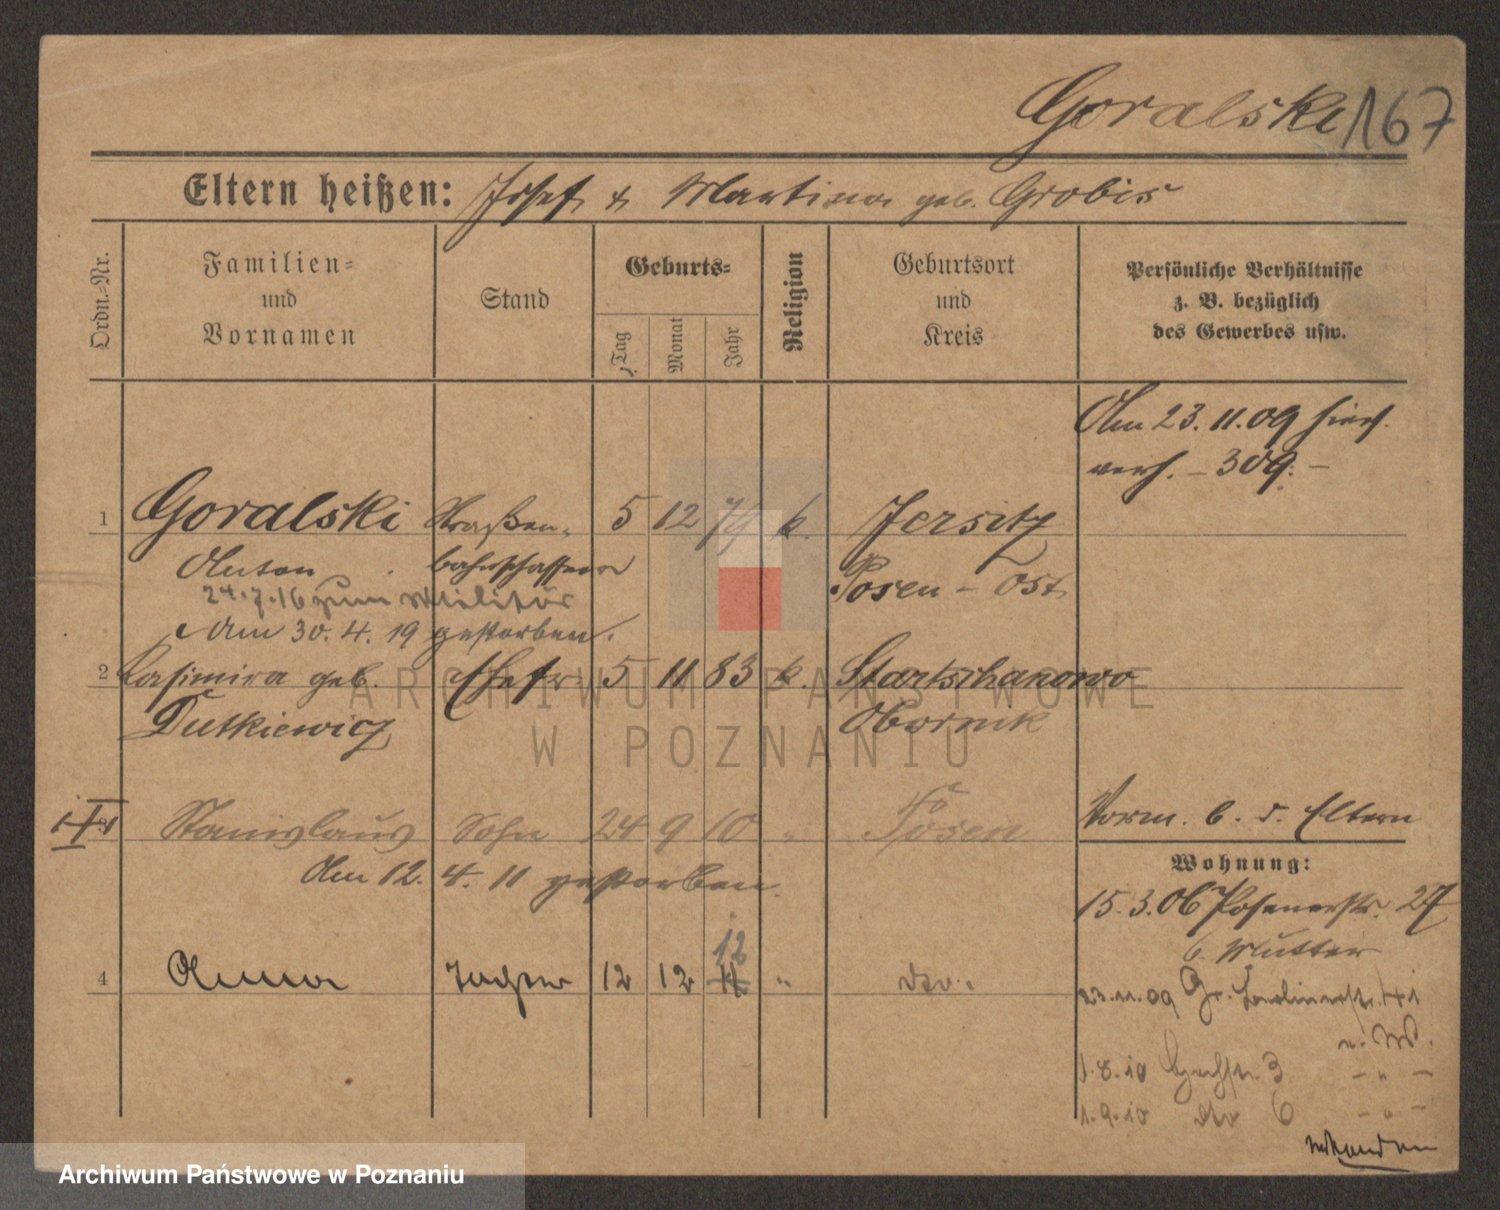 Goralski 167
Eltern heißen: Josef & Martina geb. Grobis
Ordn.-Nr.
Familien-
und
Vornamen
Stand
Geburts-
Tag
Monat
Jahr
Religion
Geburtsort
und
Kreis
Persönliche Verhältnisse
z. B. bezüglich
des Gewerbes usw.
Am 23.11.09 hier
verh. - 309. -
1 Goralski Straßen- 5 12 79 k. Jersitz
Anton bahnschaffner Posen - Ost
24.7.16 zum Militär
Am 30.4.19 gestorben.
2 Kasimira geb. Ehefr. 5 11 83 k. Startschanowo
Dutkiewicz Obornik
Stanislaus Sohn 24 9 10 " Posen
Vorm. b. d. Eltern
Am 12. 4. 11 gestorben.
Wohnung:
15.3.06 Posenerstr. 27
b. Mutter
4 Anna Tochter 12 12 12 " do.
23.11.09 Gr. Berlinerstr. 41
n. W.
1.8.10 3 - " -
1.9.10 do 6 - " -
ARCHIWUM PAŃSTWOWE
W POZNANIU
Archiwum Państwowe w Poznaniu